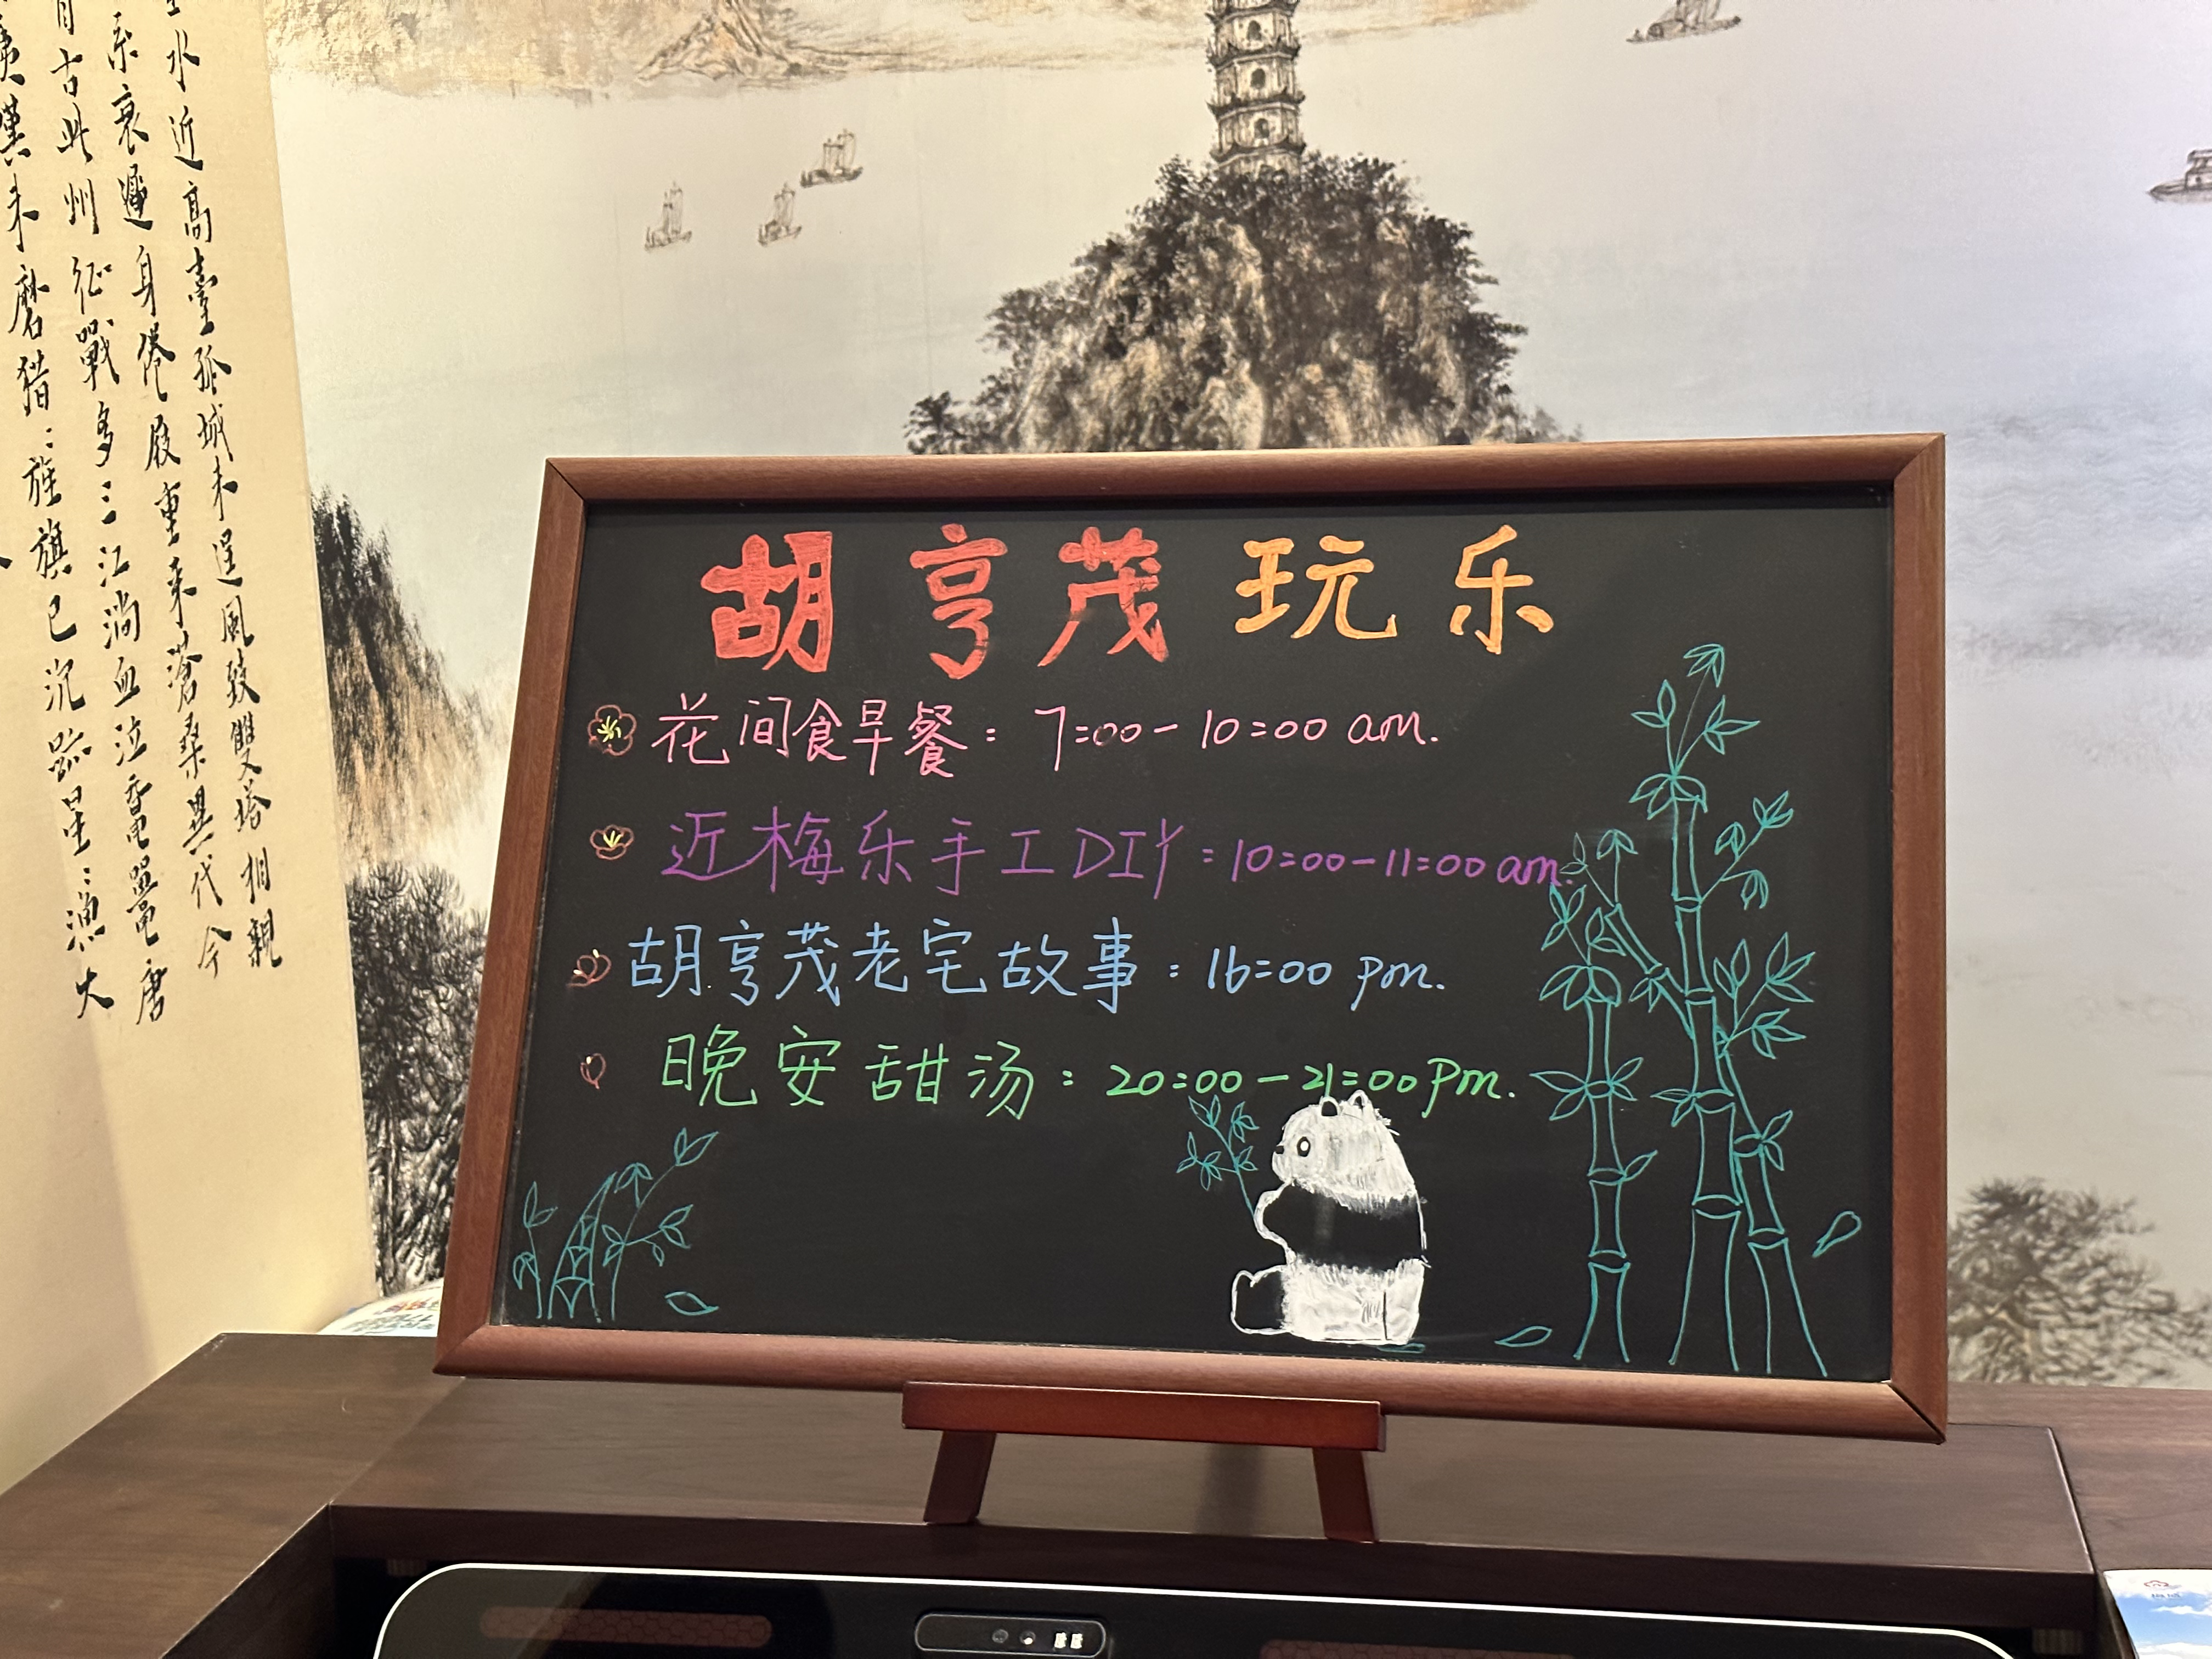 胡亨茂玩乐
花间食早餐：7:00-10:00 am.
近梅乐手工DIY：10:00-11:00 am.
胡亨茂老宅故事：16:00 pm.
晚安甜汤：20:00-21:00 pm.
水近高臺孤城未逞風致雙塔相親
衰遲身倦屐重来滄桑異代今
古此州征戰多三江淌血泣電鼉唐
未磨猎三旌旗已沉疏星三漁大